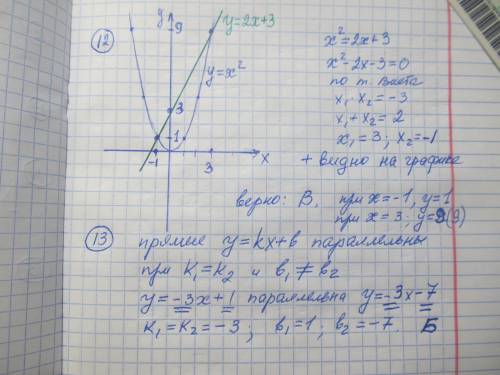 12
y
y=2x+3
9
y=x²
3
1
-1
3
x
x²=2x+3
x²-2x-3=0
по т. Виета
x₁·x₂=-3
x₁+x₂=2
x₁=3; x₂=-1
+ видно на графике
верно: В, при x=-1, y=1
при x=3; y=9(9)
13
прямые y=kx+b параллельны
при k₁=k₂ и b₁≠b₂
y=-3x+1 параллельна y=-3x-7
k₁=k₂=-3; b₁=1; b₂=-7. Б